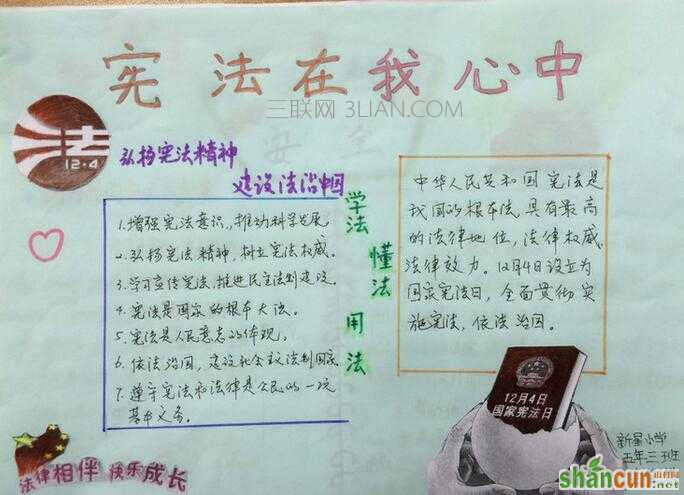 宪法在我心中
三联网 3LIAN.COM
法
12·4
弘扬宪法精神
建设法治中国
1.增强宪法意识,推动科学发展。
2.弘扬宪法精神,树立宪法权威。
3.学习宣传宪法,推进民主法制建设。
4.宪法是国家的根本大法。
5.宪法是人民意志的体现。
6.依法治国,建设社会主义法制国家
7.遵守宪法和法律是公民的一项
基本义务。
学法
懂法
用法
中华人民共和国宪法是
我国的根本法,具有最高
的法律地位,法律权威、
法律效力。12月4日设立为
国家宪法日,全面贯彻实
施宪法,依法治国。
12月4日
国家宪法日
法律相伴 快乐成长
新星小学
五年三班
shancun.net